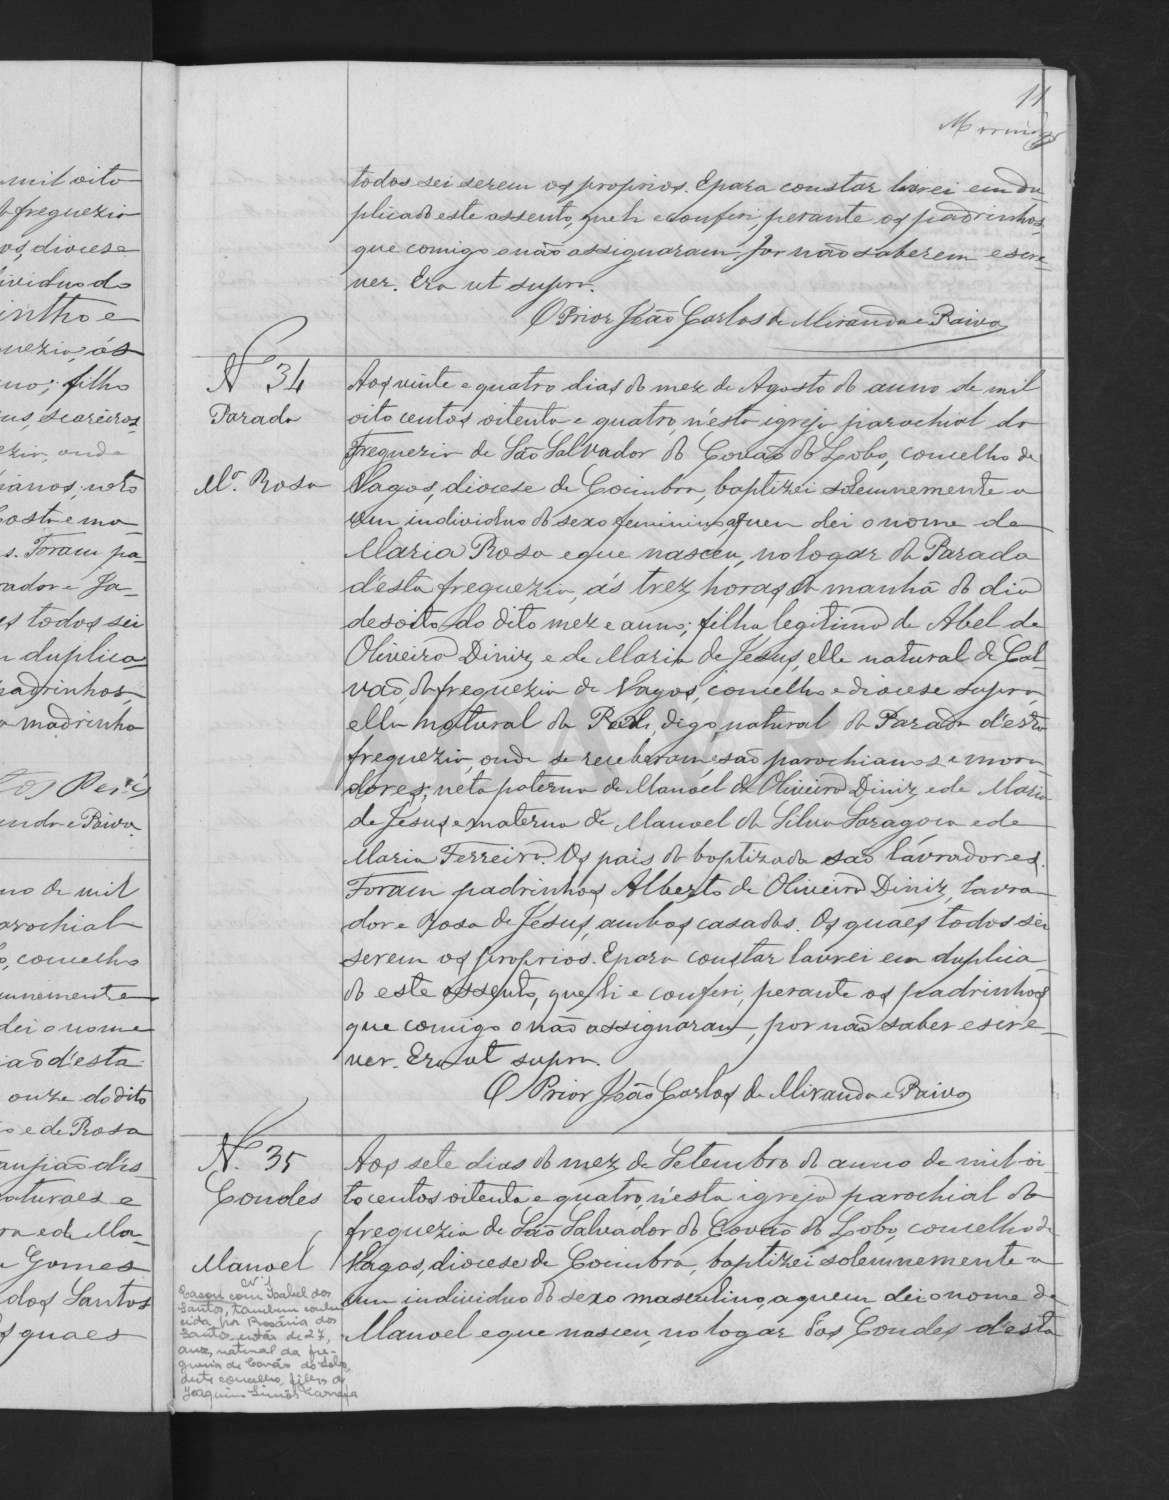 11
todos sei serem os proprios. E para constar lavrei em du
plicado este assento, que li e conferi, perante os padrinhos
que comigo o não assignaram, por não saberem escre-
ver. Era ut supra.
O Prior João Carlos de Miranda e Paiva
Nº 34
Parada
Mª. Rosa
Aos vinte e quatro dias do mez de Agosto do anno de mil
oito centos oitenta e quatro, n'esta igreja parochial da
Freguezia de São Salvador do Covão do Lobo, concelho de
Vagos, diocese de Coimbra, baptizei solemnemente a
um individuo do sexo feminino, a quem dei o nome de
Maria Rosa e que nasceu, no logar da Parada
d'esta freguezia, ás trez horas da manhã do dia
desoito do dito mez e anno; filha legitima de Abel de
Oliveira Diniz e de Maria de Jesus, elle natural de Cal
vão, da freguezia de Vagos, concelho e diocese supra,
ella natural da digo, natural da Parada d'esta
freguezia, onde se receberam, são parochianos e mora
dores; neta paterna de Manoel de Oliveira Diniz e de Maria
de Jesus e materna de Manoel da Silva Saragoca e de
Maria Ferreira. Os pais da baptizada são lavradores.
Foram padrinhos Alberto de Oliveira Diniz, lavra
dor e Rosa de Jesus, ambos casados. Os quaes todos sei
serem os proprios. E para constar lavrei em duplica
do este assento, que li e conferi, perante os padrinhos
que comigo o não assignaram, por não saber escre-
ver. Era ut supra.
O Prior João Carlos de Miranda e Paiva
N. 35
Condes
Manoel
Nº 1
Casou com Isabel dos
Santos, tambem conhe
cida por Rosária dos
Santos, de 27,
anos, natural da fre-
guesia de Covão do Lobo,
deste concelho, filha de
Joaquim Simões Carreira
Aos sete dias do mez de Setembro do anno de mil oi-
to centos oitenta e quatro, n'esta igreja parochial da
freguezia de São Salvador do Covão do Lobo, concelho de
Vagos, diocese de Coimbra, baptizei solemnemente a
um individuo do sexo masculino, a quem dei o nome de
Manoel e que nasceu, no logar dos Condes d'esta
mil oito
freguezia
os, diocese
dividuo do
intho e
guezia, ás
filho
seareiros
onde
neto
Costa e ma
s. Foram pa-
rador e Ja-
es todos sei
duplica
padrinhos,
a madrinha
Paiva.
no de mil
arochial
o, concelho
emnemente
dei o nome
d'esta
onze do dito
e de Rosa
naturaes e
ra e de Ma-
Gomes
dos Santos
Os quaes